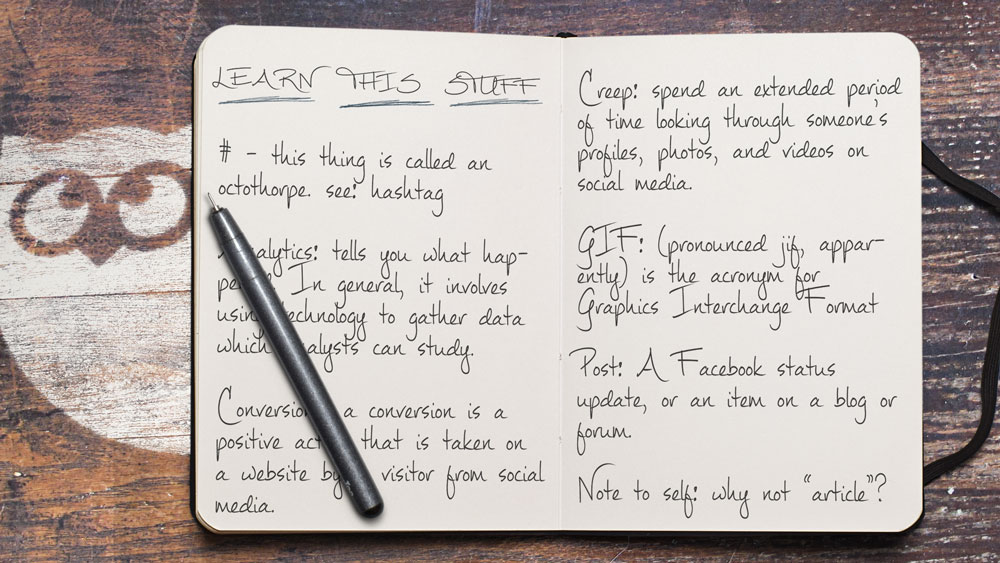 LEARN THIS STUFF
# - this thing is called an
octothorpe. see: hashtag
Analytics: tells you what hap-
In general, it involves
using technology to gather data
which analysts can study.
Conversion: a conversion is a
positive action that is taken on
a website by visitor from social
media.
Creep: spend an extended period
of time looking through someone's
profiles, photos, and videos on
social media.
GIF: (pronounced jif, appar-
ently) is the acronym for
Graphics Interchange Format
Post: A Facebook status
update, or an item on a blog or
forum.
Note to self: why not "article"?